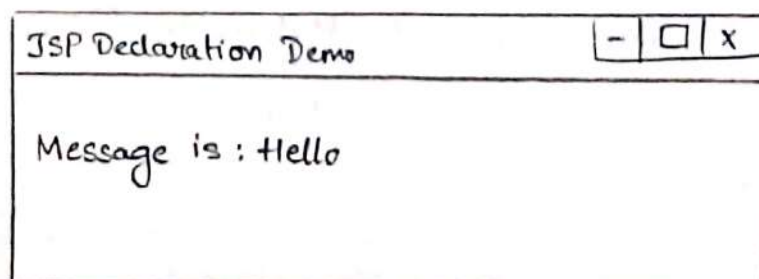 JSP Declaration Demo - □ x
Message is : Hello